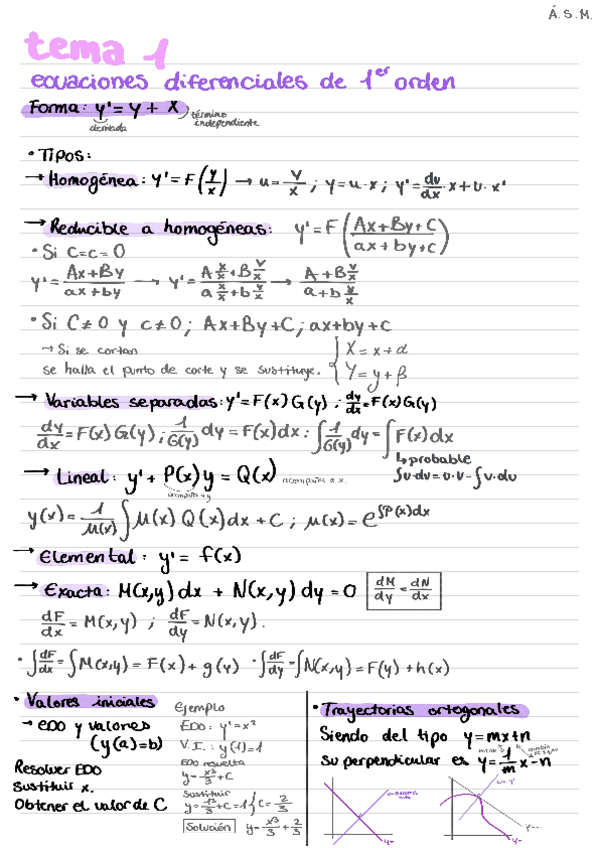 Á. S. M.
tema 1
ecuaciones diferenciales de 1er orden
Forma: y' = y + x
derivada
término independiente
• Tipos:
→ Homogénea: y' = F(y/x) → u = y/x ; y = u·x ; y' = du/dx · x + u · x'
→ Reducible a homogéneas: y' = F(Ax+By+C / ax+by+c)
• Si C=c=0
y' = Ax+By / ax+by → y' = A x/x + B y/x / a x/x + b y/x → A + B y/x / a + b y/x
• Si C≠0 y c≠0 ; Ax+By+C ; ax+by+c
→ Si se cortan
se halla el punto de corte y se substituye. { X = x+α
Y = y+β
→ Variables separadas: y' = F(x) G(y) ; dy/dx = F(x) G(y)
dy/dx = F(x) G(y) ; 1/G(y) dy = F(x) dx : ∫ 1/G(y) dy = ∫ F(x) dx
↳ probable
∫u·dv = u·v − ∫v·du
→ Lineal: y' + P(x) y = Q(x) acompaña a x.
acompaña a y
y(x) = 1/μ(x) ∫ μ(x) Q(x) dx + C ; μ(x) = e^∫P(x)dx
→ Elemental: y' = f(x)
→ Exacta: M(x,y) dx + N(x,y) dy = 0 dM/dy = dN/dx
dF/dx = M(x,y) ; dF/dy = N(x,y).
• ∫ dF/dx = ∫ M(x,y) = F(x) + g(y) • ∫ dF/dy = ∫ N(x,y) = F(y) + h(x)
• Valores iniciales
→ EDO y valores
(y(a)=b)
Resolver EDO
Sustituir x.
Obtener el valor de C
Ejemplo
EDO: y' = x²
V.I.: y(1) = 1
EDO resuelta
y = x³/3 + C
Sustituir
y = 1³/3 + C = 1 ; C = 2/3
Solución y = x³/3 + 2/3
• Trayectorias ortogonales
Siendo del tipo y = mx+n
Su perpendicular es y = 1/m x − n